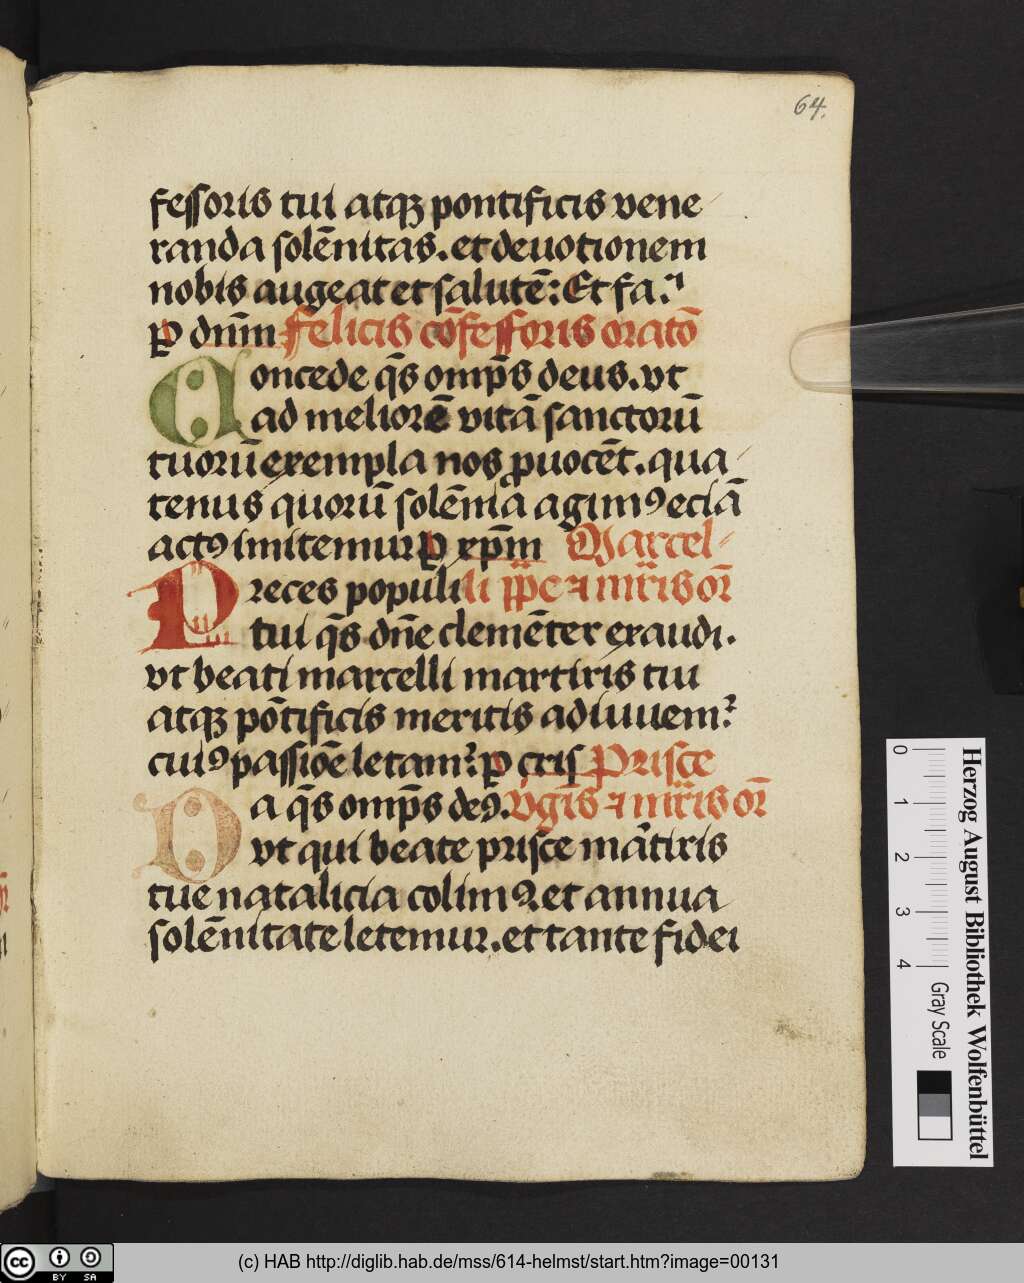 64.
feſſoris tui atqꝫ pontificis vene
randa solēnitas. et deuotionem
nobis augeat et salutē: Et fa.
ꝑ dn̄m Felicis cōfeſſoris oratō
Concede q̄s omp̄s deus. vt
ad meliorē vitā sanctorū
tuorū exempla nos ꝓuocēt. qua
tenus quorū solēnia agimꝰ eciā
actꝰ imitemur ꝑ xp̄m Marcel
Preces populi li pp̄e ⁊ mr̄is or̄
tui q̄s dn̄e clemēter exaudi.
vt beati marcelli martiris tui
atqꝫ pōtificis meritis adiuuemᷣ
cuiꝰ paſſiōe letamᷣ: ꝑ
Prisce
Da q̄s omp̄s deꝰ. v̄gis ⁊ mr̄is or̄
vt qui beate prisce mātiris
tue natalicia colimꝰ. et annua
solēnitate letemur. et tante fidei
Herzog August Bibliothek Wolfenbüttel
0 1 2 3 4 Gray Scale
cc BY SA
(c) HAB http://diglib.hab.de/mss/614-helmst/start.htm?image=00131